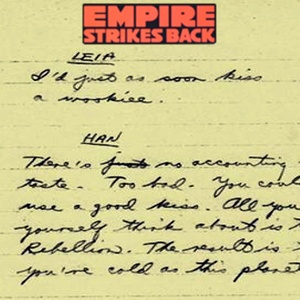 EMPIRE
STRIKES BACK
LEIA
I'd just as soon kiss
a wookiee.
HAN
There's just no accounting
taste. Too bad. You coul
use a good kiss. All you
yourself think about is t
Rebellion. The result is
you're cold as this planet